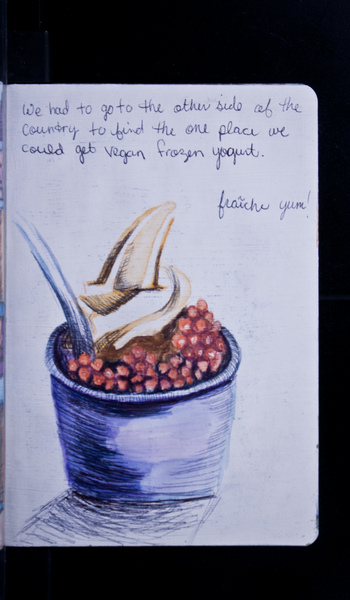 We had to go to the other side of the
country to find the one place we
could get vegan frozen yogurt.
fraîche yum!